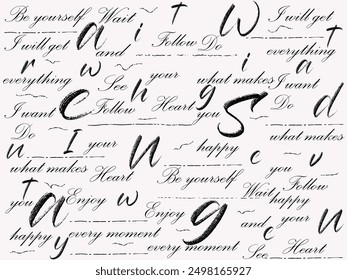 Be yourself Wait I will get
I will get a i t W
and Follow Do everything
r w i t
everything See your what makes a
h n g I want
I want C Follow Heart S d
Do everything
i I your N happy e u
what makes Heart what makes
Be yourself Wait Follow
t you a Enjoy w Enjoy g your n
happy y every moment and you
every moment See Heart
shutterstock.com · 2498165927